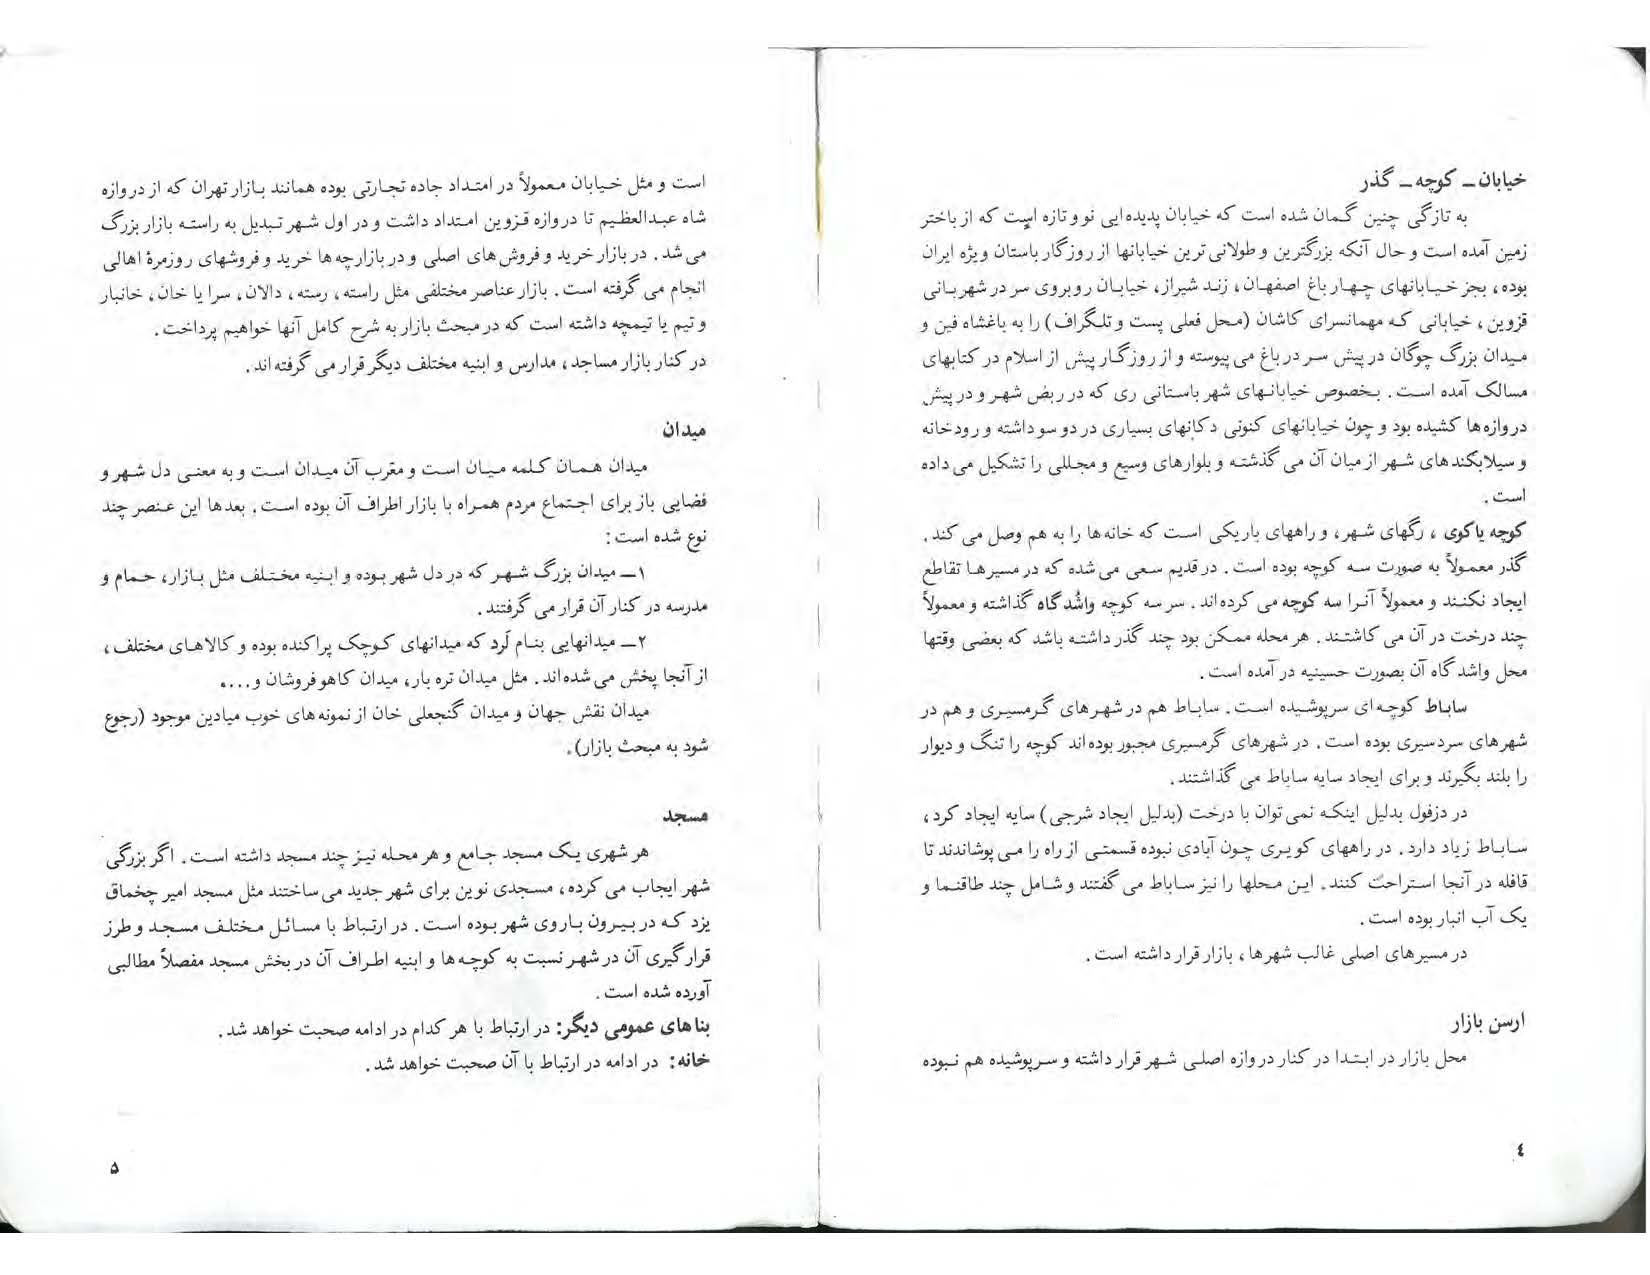 خیابان ـ کوچه ـ گذر
به تازگی چنین گمان شده است که خیابان پدیده ایی نو و تازه است که از باختر
زمین آمده است و حال آنکه بزرگترین و طولانی ترین خیابانها از روزگار باستان ویژه ایران
بوده، بجز خیابانهای چهار باغ اصفهان، زند شیراز، خیابان روبروی سر در شهربانی
قزوین، خیابانی که مهمانسرای کاشان (محل فعلی پست و تلگراف) را به باغشاه فین و
میدان بزرگ چوگان در پیش سر در باغ می پیوسته و از روزگار پیش از اسلام در کتابهای
مسالک آمده است. بخصوص خیابانهای شهر باستانی ری که در ربض شهر و در پیش
دروازه ها کشیده بود و چون خیابانهای کنونی دکانهای بسیاری در دو سو داشته و رودخانه
و سیلابکندهای شهر از میان آن می گذشته و بلوارهای وسیع و مجللی را تشکیل می داده
است.
کوچه یا کوی، رگهای شهر، و راههای باریکی است که خانه ها را به هم وصل می کند.
گذر معمولاً به صورت سه کوچه بوده است. در قدیم سعی می شده که در مسیرها تقاطع
ایجاد نکنند و معمولاً آنرا سه کوچه می کرده اند. سر سه کوچه واشُدگاه گذاشته و معمولاً
چند درخت در آن می کاشتند. هر محله ممکن بود چند گذر داشته باشد که بعضی وقتها
محل واشدگاه آن بصورت حسینیه در آمده است.
ساباط کوچه ای سرپوشیده است. ساباط هم در شهرهای گرمسیری و هم در
شهرهای سردسیری بوده است. در شهرهای گرمسیری مجبور بوده اند کوچه را تنگ و دیوار
را بلند بگیرند و برای ایجاد سایه ساباط می گذاشتند.
در دزفول بدلیل اینکه نمی توان با درخت (بدلیل ایجاد شرجی) سایه ایجاد کرد،
ساباط زیاد دارد. در راههای کویری چون آبادی نبوده قسمتی از راه را می پوشاندند تا
قافله در آنجا استراحت کنند. این محلها را نیز ساباط می گفتند و شامل چند طاقنما و
یک آب انبار بوده است.
در مسیرهای اصلی غالب شهرها، بازار قرار داشته است.
ارسن بازار
محل بازار در ابتدا در کنار دروازه اصلی شهر قرار داشته و سرپوشیده هم نبوده
٤
است و مثل خیابان معمولاً در امتداد جاده تجارتی بوده همانند بازار تهران که از دروازه
شاه عبدالعظیم تا دروازه قزوین امتداد داشت و در اول شهر تبدیل به راسته بازار بزرگ
می شد. در بازار خرید و فروش های اصلی و در بازارچه ها خرید و فروشهای روزمرهٔ اهالی
انجام می گرفته است. بازار عناصر مختلفی مثل راسته، رسته، دالان، سرا یا خان، خانبار
و تیم یا تیمچه داشته است که در مبحث بازار به شرح کامل آنها خواهیم پرداخت.
در کنار بازار مساجد، مدارس و ابنیه مختلف دیگر قرار می گرفته اند.
میدان
میدان همان کلمه میان است و معرب آن میدان است و به معنی دل شهر و
فضایی باز برای اجتماع مردم همراه با بازار اطراف آن بوده است. بعدها این عنصر چند
نوع شده است:
۱ـ میدان بزرگ شهر که در دل شهر بوده و ابنیه مختلف مثل بازار، حمام و
مدرسه در کنار آن قرار می گرفتند.
۲ـ میدانهایی بنام لَرد که میدانهای کوچک پراکنده بوده و کالاهای مختلف،
از آنجا پخش می شده اند. مثل میدان تره بار، میدان کاهوفروشان و....
میدان نقش جهان و میدان گنجعلی خان از نمونه های خوب میادین موجود (رجوع
شود به مبحث بازار).
مسجد
هر شهری یک مسجد جامع و هر محله نیز چند مسجد داشته است. اگر بزرگی
شهر ایجاب می کرده، مسجدی نوین برای شهر جدید می ساختند مثل مسجد امیر چخماق
یزد که در بیرون باروی شهر بوده است. در ارتباط با مسائل مختلف مسجد و طرز
قرارگیری آن در شهر نسبت به کوچه ها و ابنیه اطراف آن در بخش مسجد مفصلاً مطالبی
آورده شده است.
بناهای عمومی دیگر: در ارتباط با هر کدام در ادامه صحبت خواهد شد.
خانه: در ادامه در ارتباط با آن صحبت خواهد شد.
۵